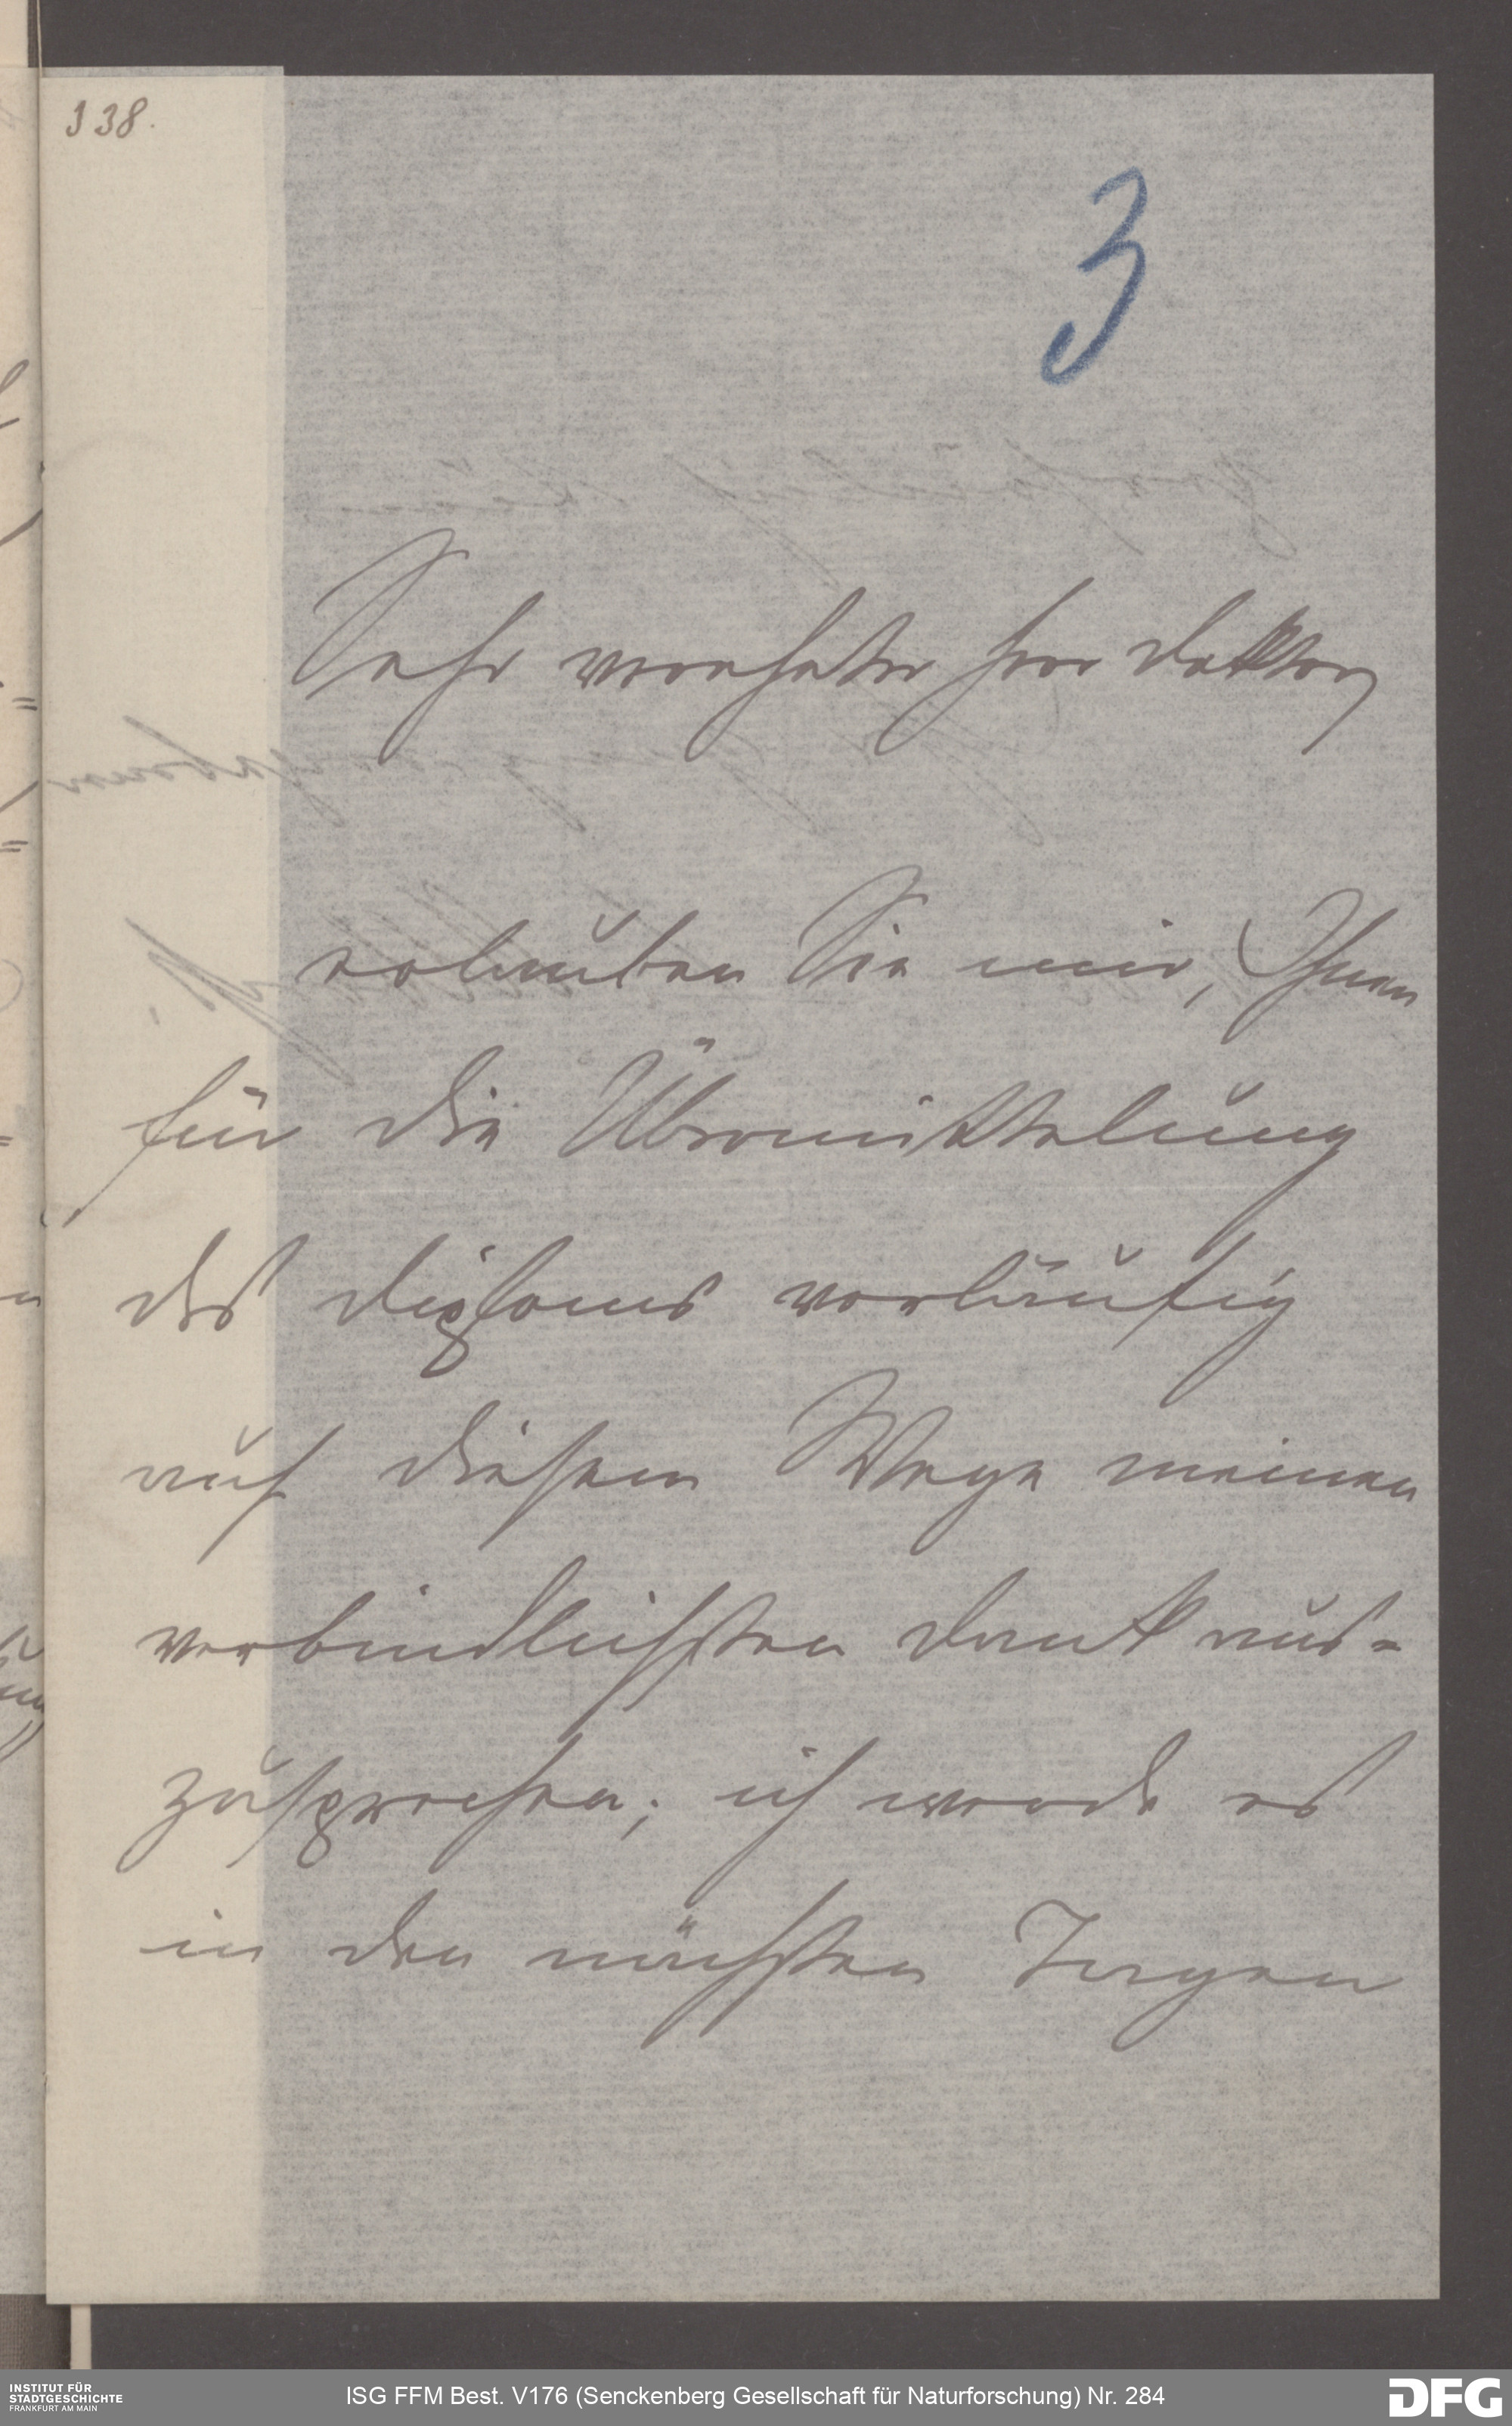 138.
3
Sehr verehrter Herr Doktor,
erlauben Sie mir, Ihnen
für die Übermittelung
des Diploms vorläufig
auf diesem Wege meinen
verbindlichsten Dank aus-
zusprechen; ich werde es
in den nächsten Tagen
INSTITUT FÜR
STADTGESCHICHTE
FRANKFURT AM MAIN
ISG FFM Best. V176 (Senckenberg Gesellschaft für Naturforschung) Nr. 284
DFG